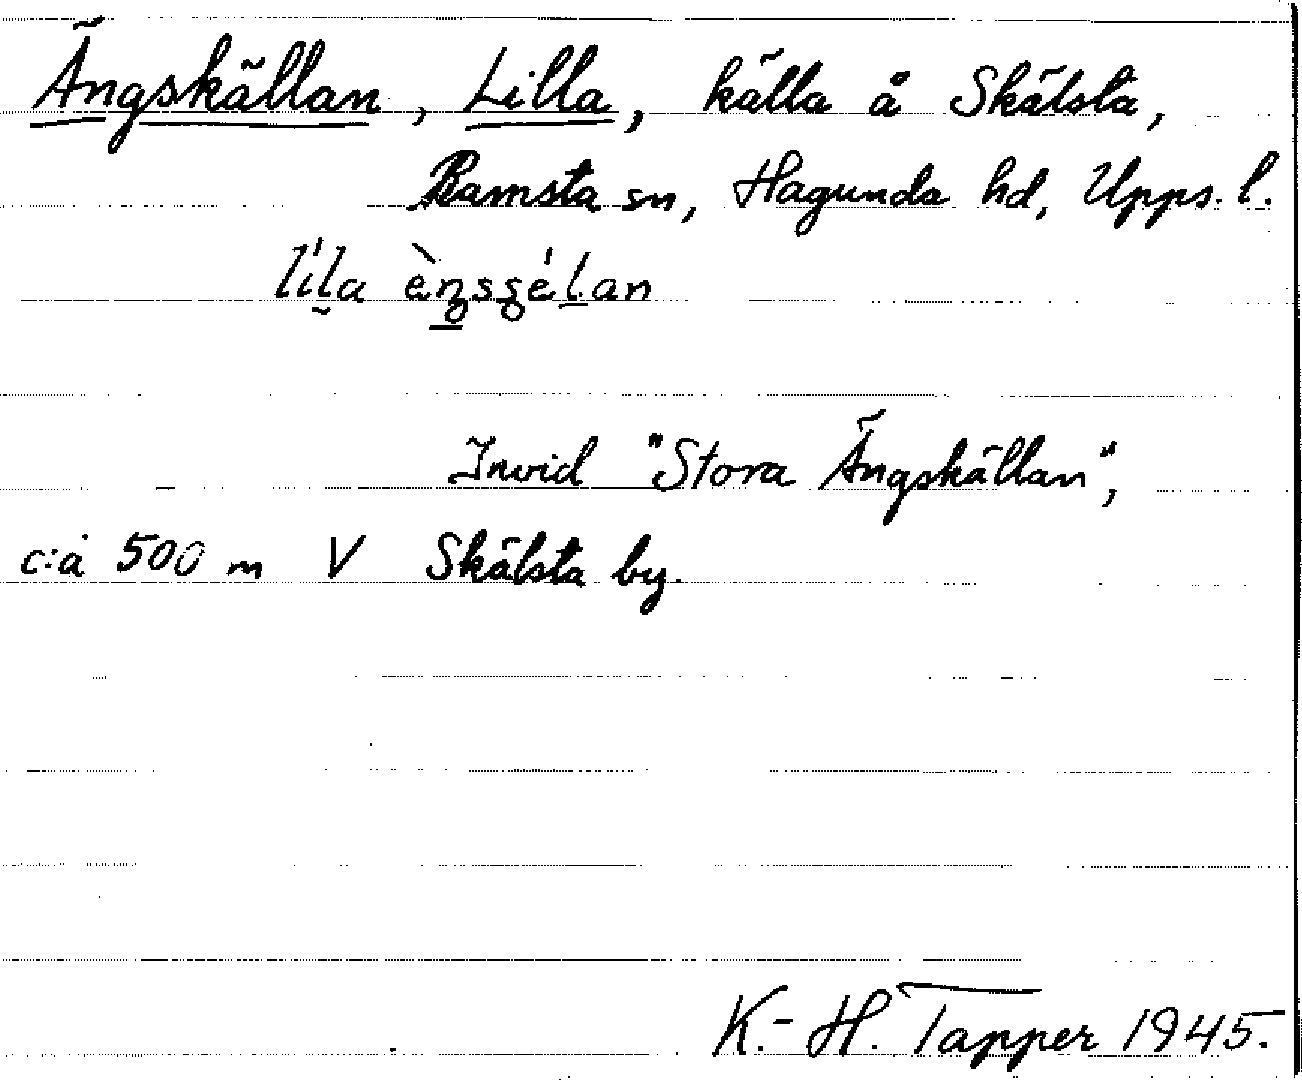 Ängskällan, Lilla, källa å Skälsta,
Ramsta sn, Hagunda hd, Upps. l.
Invid "Stora Ängskällan",
c:a 500 m V Skälsta by.
K.-H. Tapper 1945.